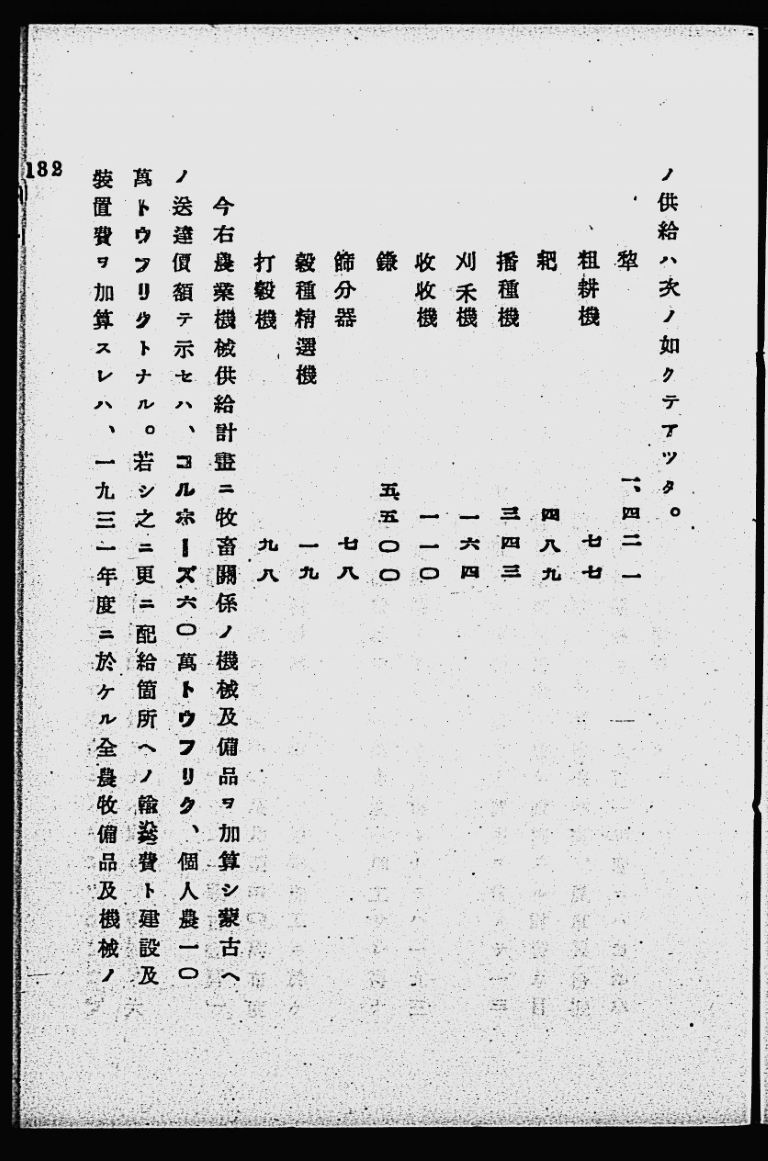 ノ供給ハ次ノ如クテアツタ。
犂　一、四二一
粗耕機　七七
耙　四八九
播種機　三四三
刈禾機　一六四
收收機　一一〇
鎌　五、五〇〇
篩分器　七八
穀種精選機　一九
打穀機　九八
今右農業機械供給計畫ニ牧畜關係ノ機械及備品ヲ加算シ蒙古ヘ
ノ送達價額テ示セハ、コルホーズ六〇萬トウフリク、個人農一〇
萬トウフリクトナル。若シ之ニ更ニ配給箇所ヘノ輸送費ト建設及
裝置費ヲ加算スレハ、一九三一年度ニ於ケル全農牧備品及機械ノ
182